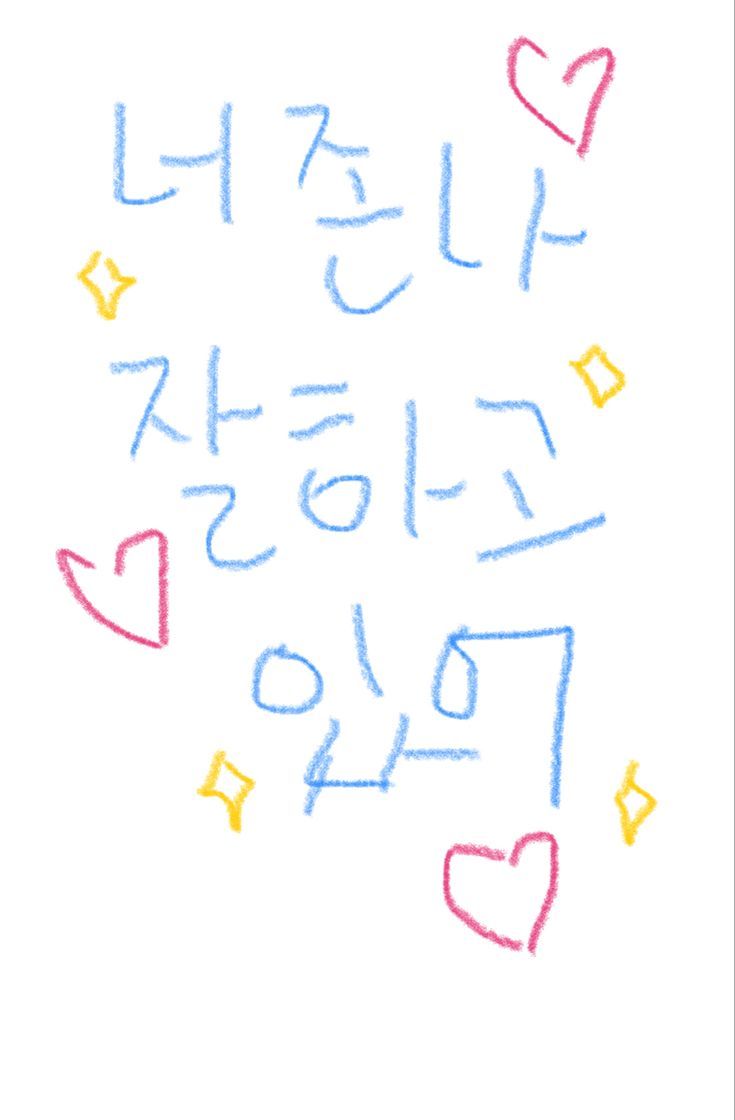 너 존나
잘하고
있어